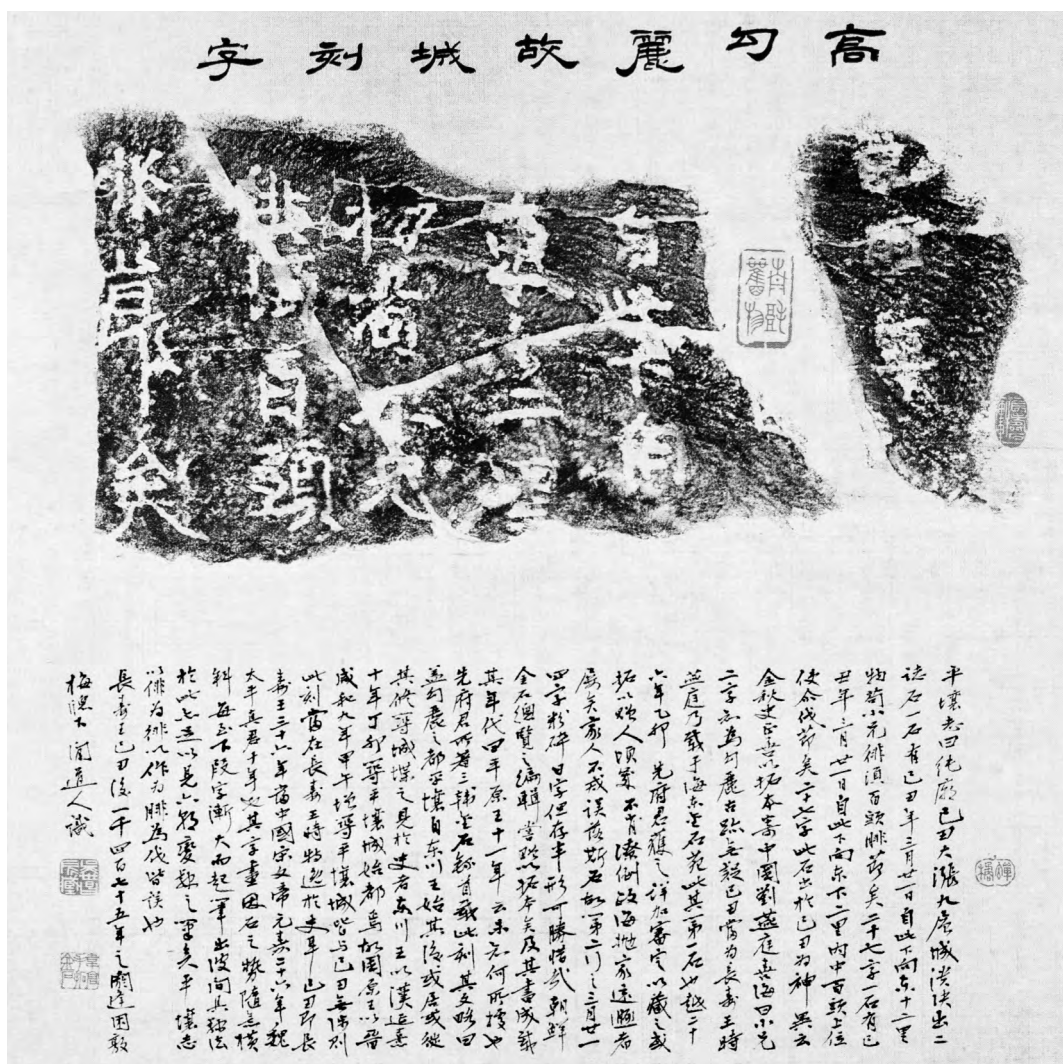 高勾麗故城刻字
己丑年
自此下向
東十二里
物苟小兄
俳須百頭
作節矣
平壤志曰純廟己丑大漲九屋城潰決出二
誌石一石有己丑年三月廿一日自此下向东十二里
物苟小兄俳須百頭腓節矣二十七字一石有己
丑年三月廿一日自此下向东下二里内中百頭上位
使尒伐節矣二十七字此石出於己丑为神異云
金秋史正喜以拓本寄中國劉燕庭喜海曰小兄
二字知为勾麗古跡無疑己丑當为長壽王時
燕庭乃載于海东金石苑此其第一石也越二十
六年乙卯 先府君獲之詳加審定以藏之或
拓以贻人頃歲不肖潦倒政海抛家遠颺者
屢矣家人不戒誤落斯石故第二行之三月廿一
四字粉碎日字但存半形可勝惜哉朝鮮
金石總覽之編輯嘗照此拓本矣及其書成載
其年代曰平原王十一年云未知何所據也
先府君所著三韩金石錄首載此刻其文略曰
蓋勾麗之都平壤自东川王始其後或居或徙
其修築城堞之見於史者东川王以漢延熹
十年丁卯築平壤城始都焉故國原王以晋
咸和九年甲午增築平壤城皆与己丑無涉則
此刻當在長壽王時特逸於史耳己丑即長
壽王三十六年當中國宋文帝元嘉二十六年魏
太平真君十年又其字畫因石之势隨意橫
斜每至下段字漸大而起筆出波间具隸法
於此亦足以見六朝變隸之筆矣平壤志
以俳为徘以作为腓为伐皆誤也
長壽王己丑後一千四百七十五年之閼逢困敦
下閒道人識